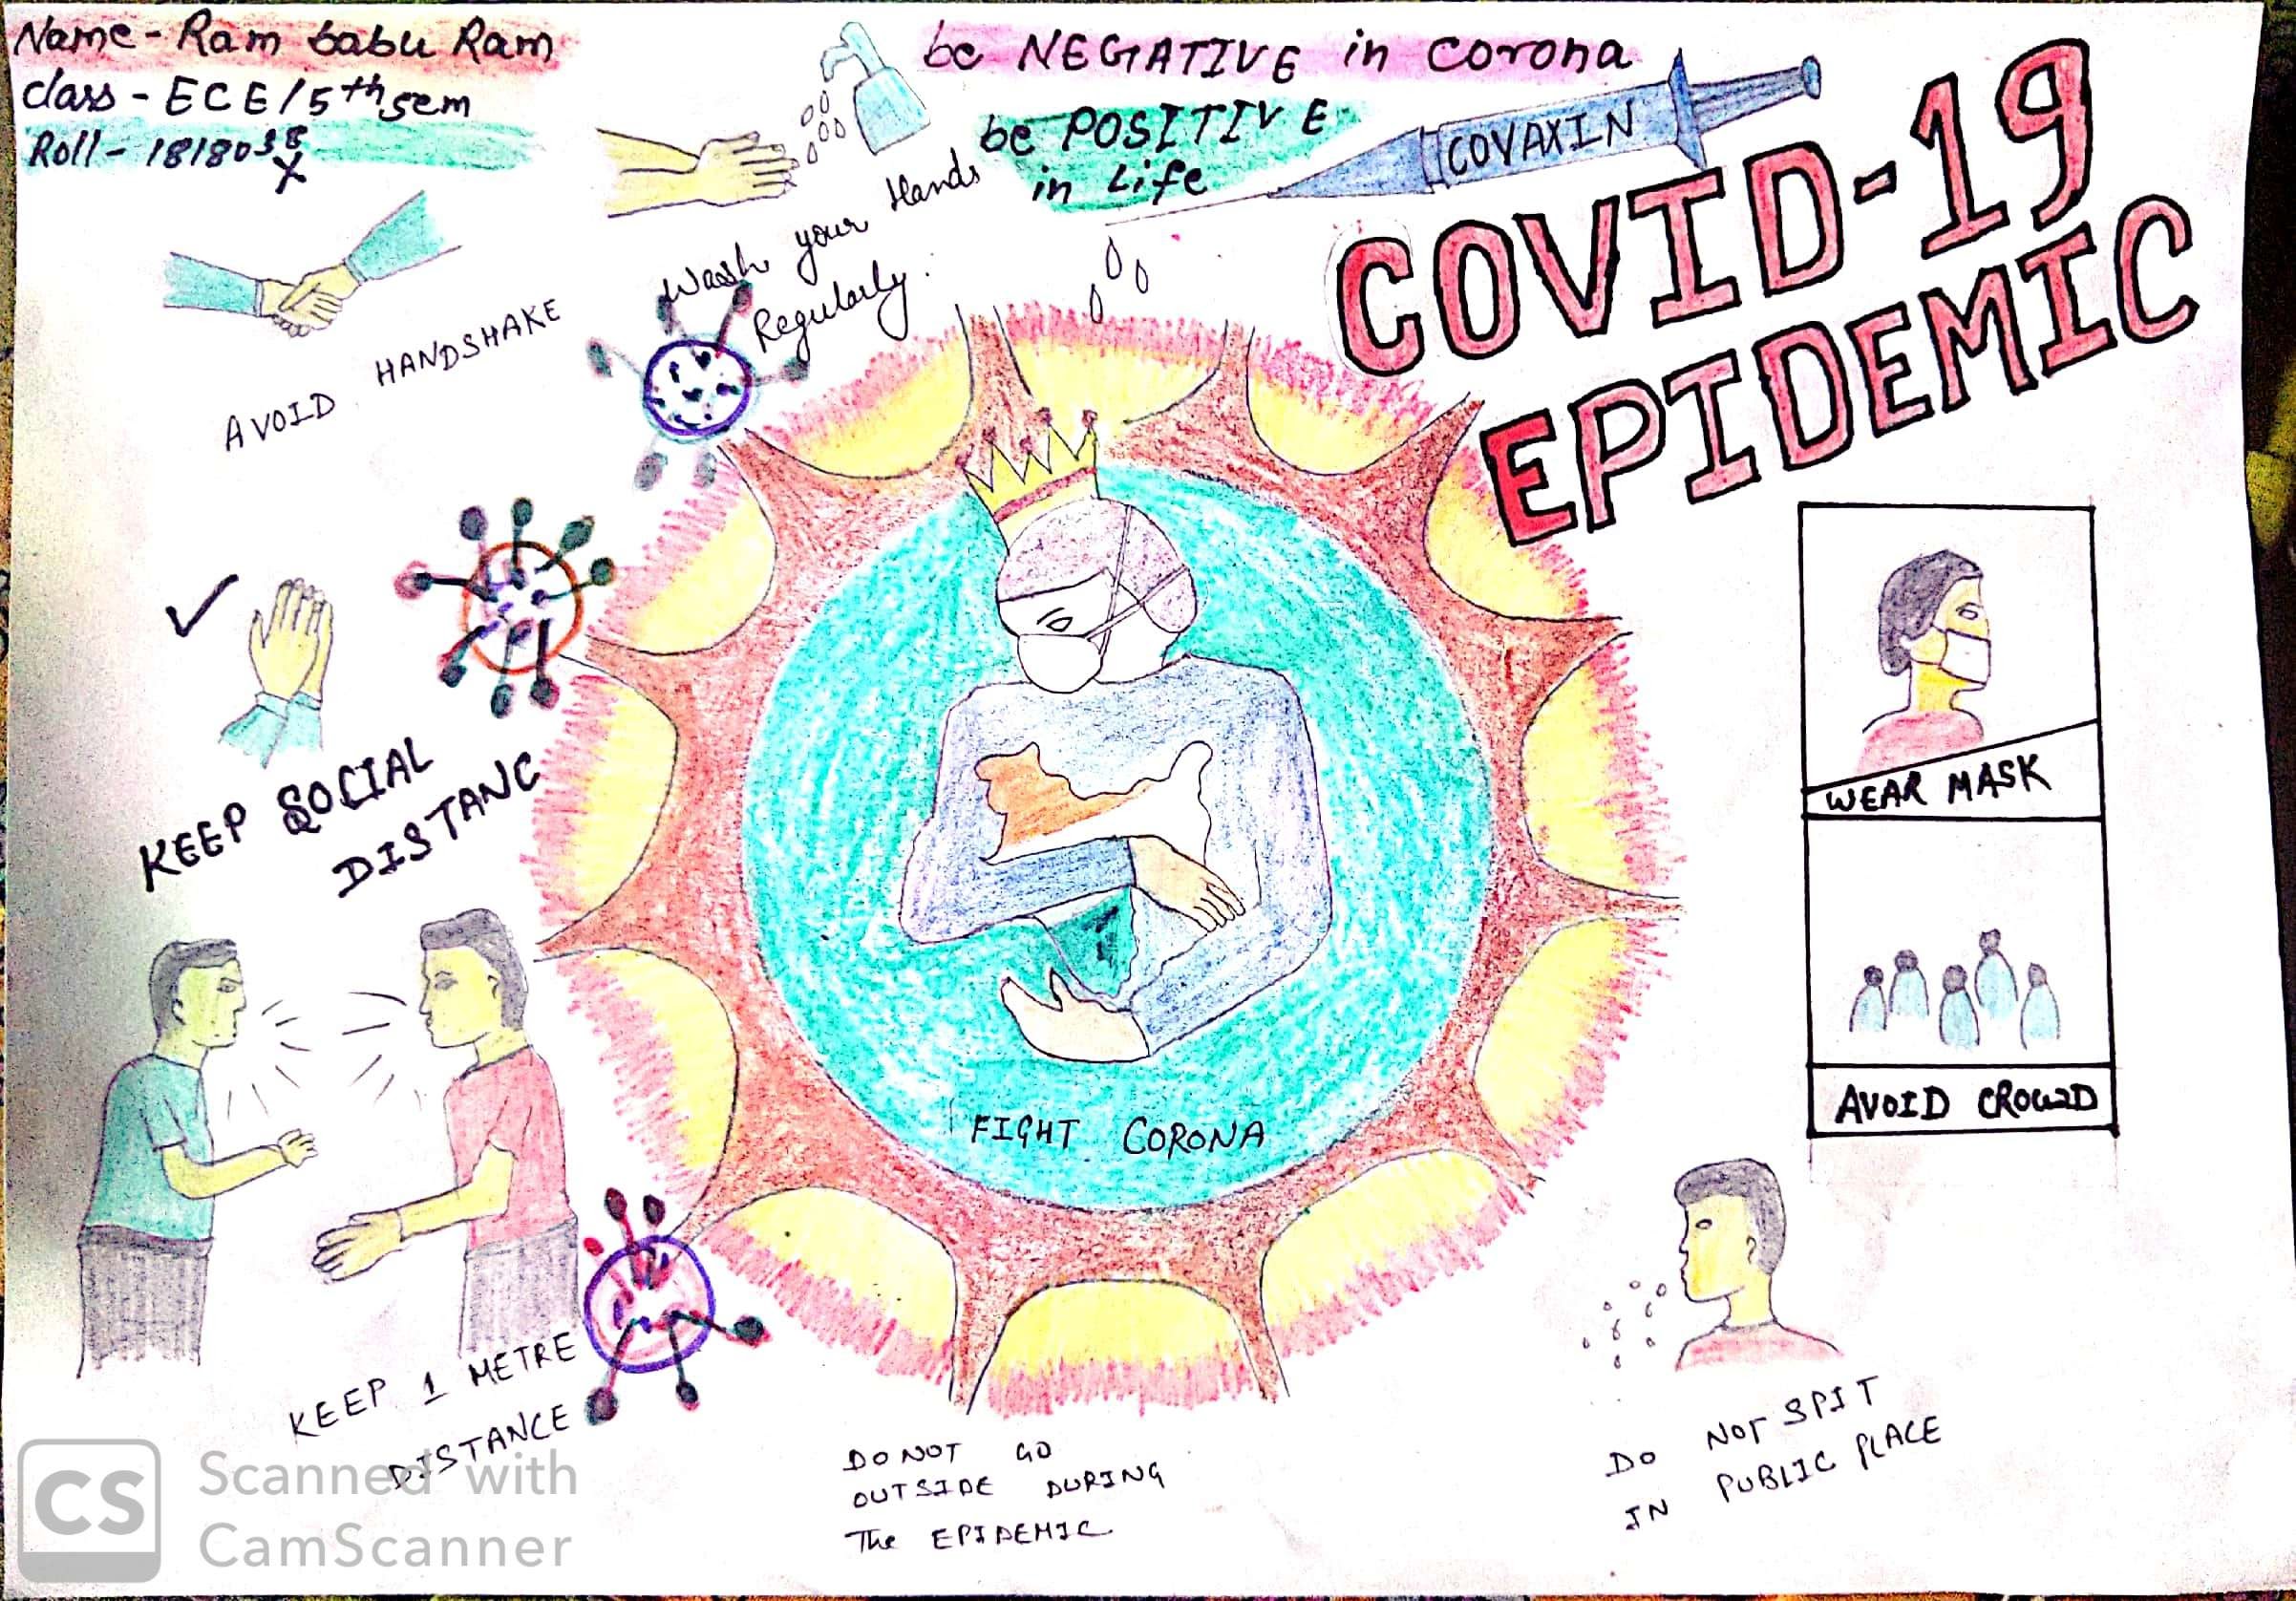 Name - Ram babu Ram
class - ECE/5th sem
Roll - 1818038
be NEGATIVE in corona
be POSITIVE
in Life
COVAXIN
COVID-19
EPIDEMIC
Wash your Hands
Regularly.
AVOID HANDSHAKE
KEEP SOCIAL
DISTANC
WEAR MASK
AVOID CROWD
FIGHT CORONA
KEEP 1 METRE
DISTANCE
DO NOT GO
OUTSIDE DURING
The EPIDEMIC
DO NOT SPIT
IN PUBLIC PLACE
CS
Scanned with
CamScanner